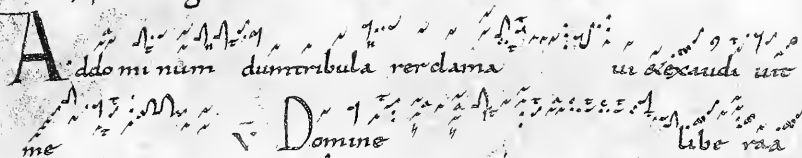 Addominum dumtribula rerclama ui &exaudi uit
me V Domine libe raa